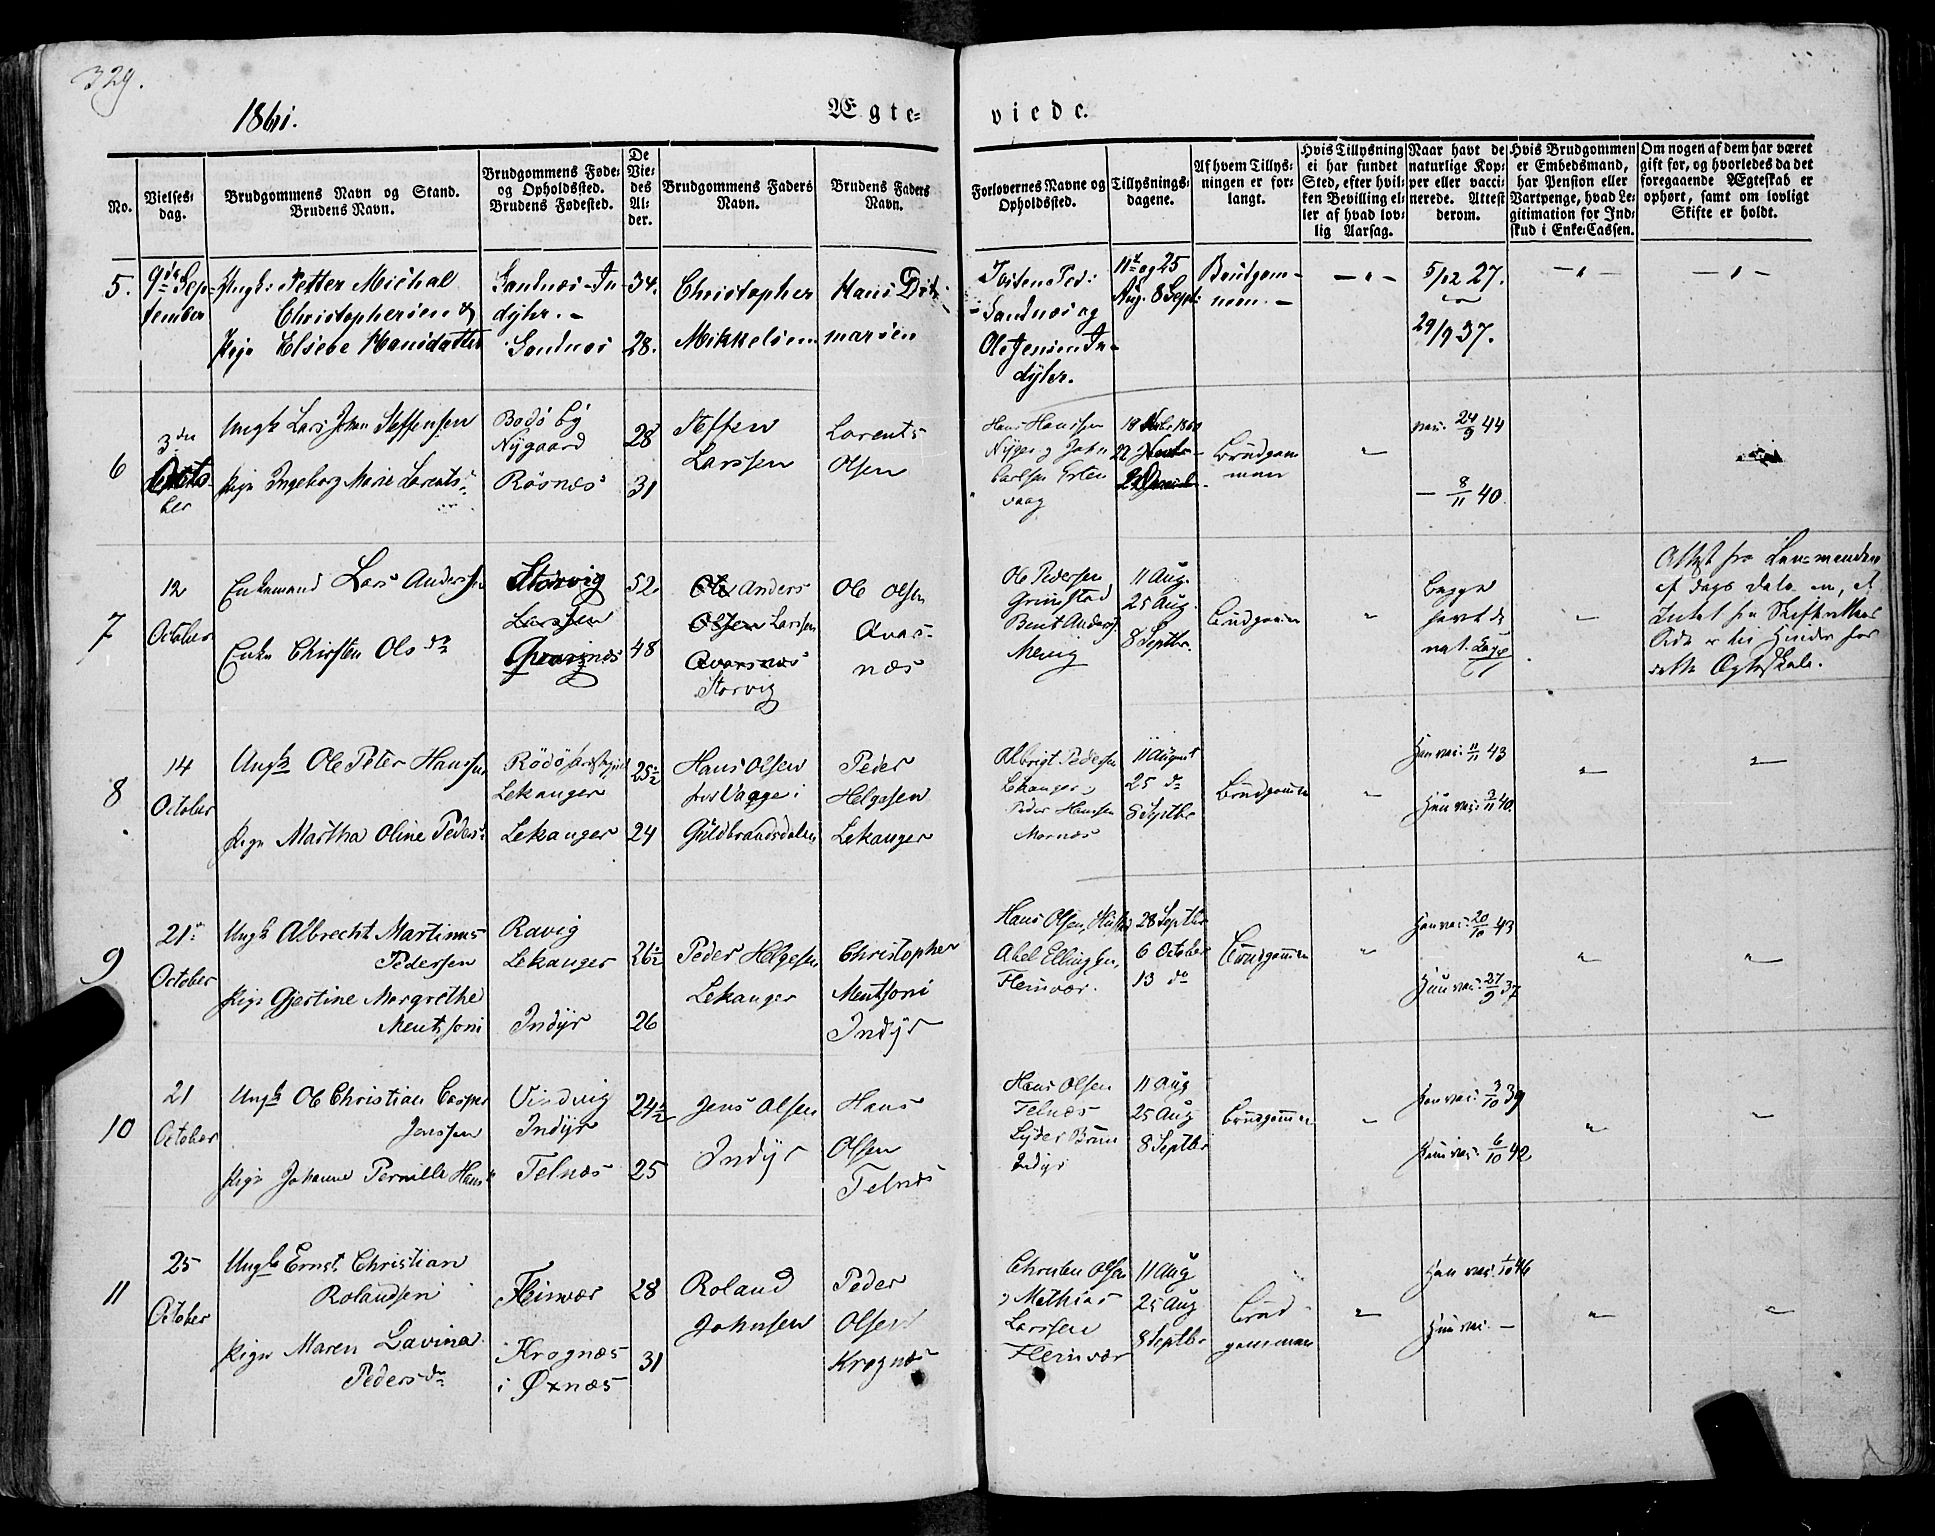 329.
1861.
Ægte-
viede.
No.
Vielses-
dag.
Brudgommens Navn og Stand.
Brudens Navn.
Brudgommens Føde-
og Opholdssted.
Brudens Fødested.
De
Vie-
des
Al-
der.
Brudgommens Faders
Navn.
Brudens Faders
Navn.
Forlovernes Navne og
Opholdssted.
Tillysnings-
dagene.
Af hvem Tillys-
ningen er for-
langt.
Hvis Tillysning
ei har fundet
Sted, efter hvil-
ken Bevilling el-
ler af hvad lov-
lig Aarsag.
Naar havt de
naturlige Kop-
per eller vacci-
nerede. Attest
derom.
Hvis Brudgommen
er Embedsmand,
har Pension eller
Vartpenge, hvad Le-
gitimation for Ind-
skud i Enke-Cassen.
Om nogen af dem har været
gift før, og hvorledes da det
foregaaende Ægteskab er
ophørt, samt om lovligt
Skifte er holdt.
5.
9de Sep-
tember
Ungk: Petter Michal
Christophersen &
Pige Elsebe Hansdatter
Sandnæs - In-
dyhr. -
Sandnæs
34.
28.
Christopher
Mikkelsen
Hans Dit-
marsen
Iversen Ped:
Sandnæs og
Ole Jensen In-
dyhr.
11te og 25
Aug. 8 Sept:
Brudgom-
men. -
- " -
5/12 27.
29/9 37.
- " -
- " -
6
3die
Octo-
ber
Ungk Lars Johan Steffensen
Pige Ingeborg Marie Lorents:
Bodø By
Nygaard
Røsnæs
28
31
Steffen
Larssen
Lorents
Olsen
Hans Hanssen
Nyg og John
Carlsen
vaag
Brudgom
men
"
vac. 24/9 44
- 8/11 40.
7
12
October
Enkemand Lars Anderssen
Enke Chirsten Ols dr
Storvig
Larssen
52.
48
Ole Anders
Olsen Larssen
Avarsnæs
Storvig
Ole Olsen
Avas-
næs
Ole Pedersen
Grimstad
Bent Anders
Mevig
11 Aug.
25 Aug.
8 Septbr.
Brudgommen
"
Begge
havt de
nat. Kopp
"
Attest fra Lensmanden
af Dags Dato om, at
Intet fra Skifterettens
Side er til Hinder for
dette Ægteskab.
8
14
October
Ungk Ole Peter Hanssen
Pige Martha Oline Peders:
Rødø
Lekanger
Lekanger
25½
24
Hans Olsen
fra Vaage i
Guldbrandsdalen
Peder
Helgesen
Lekanger
Albrigt Pedersen
Lekanger,
Peder Hanssen
Mornæs
11 August
25 do
8 Septbr
Brudgommen
"
Han vac: 11/11 43
Hun vac: 3/11 40.
"
"
9
21
October
Ungk Albrecht Martinus
Pedersen
Pige Gjertine Margrethe
Mentzoni
Ravig
Lekanger
Indyr
26½
26
Peder Helgesen
Lekanger
Christopher
Mentzoni
Indyr
Hans Olsen,
Abel Ellingsen,
Fleinvær.
28 Septbr
6 October
13 do
Brudgommen
"
Han vac: 20/10 43
Hun vac: 27/9 37
"
"
10
21
October
Ungk Ole Christian Casper
Jenssen
Pige Johanne Pernille Hans
Vindvig
Indyr
Telnæs
24½
25
Jens Olsen
Indyr
Hans
Olsen
Telnæs
Hans Olsen
Telnæs
Lyder Brun
Indyr
11 Aug
25 Aug
8 Septbr
Brudgommen
"
Han vac: 3/10 39
Hun vac: 6/10 42
"
"
11
25
October
Ungk Ernst Christian
Rolandsen
Pige Maren Lavina
Peders dr
Fleinvær
Krognæs
i Øxnæs
28
31
Roland
Johnsen
Peder
Olsen
Krognæs
Christen Olsen
Mathias
Larssen
Fleinvær
11 Aug
25 Aug
8 Septbr
Brud-
gommen
"
Han vac: 1/10 46
Hun vac. -
"
"